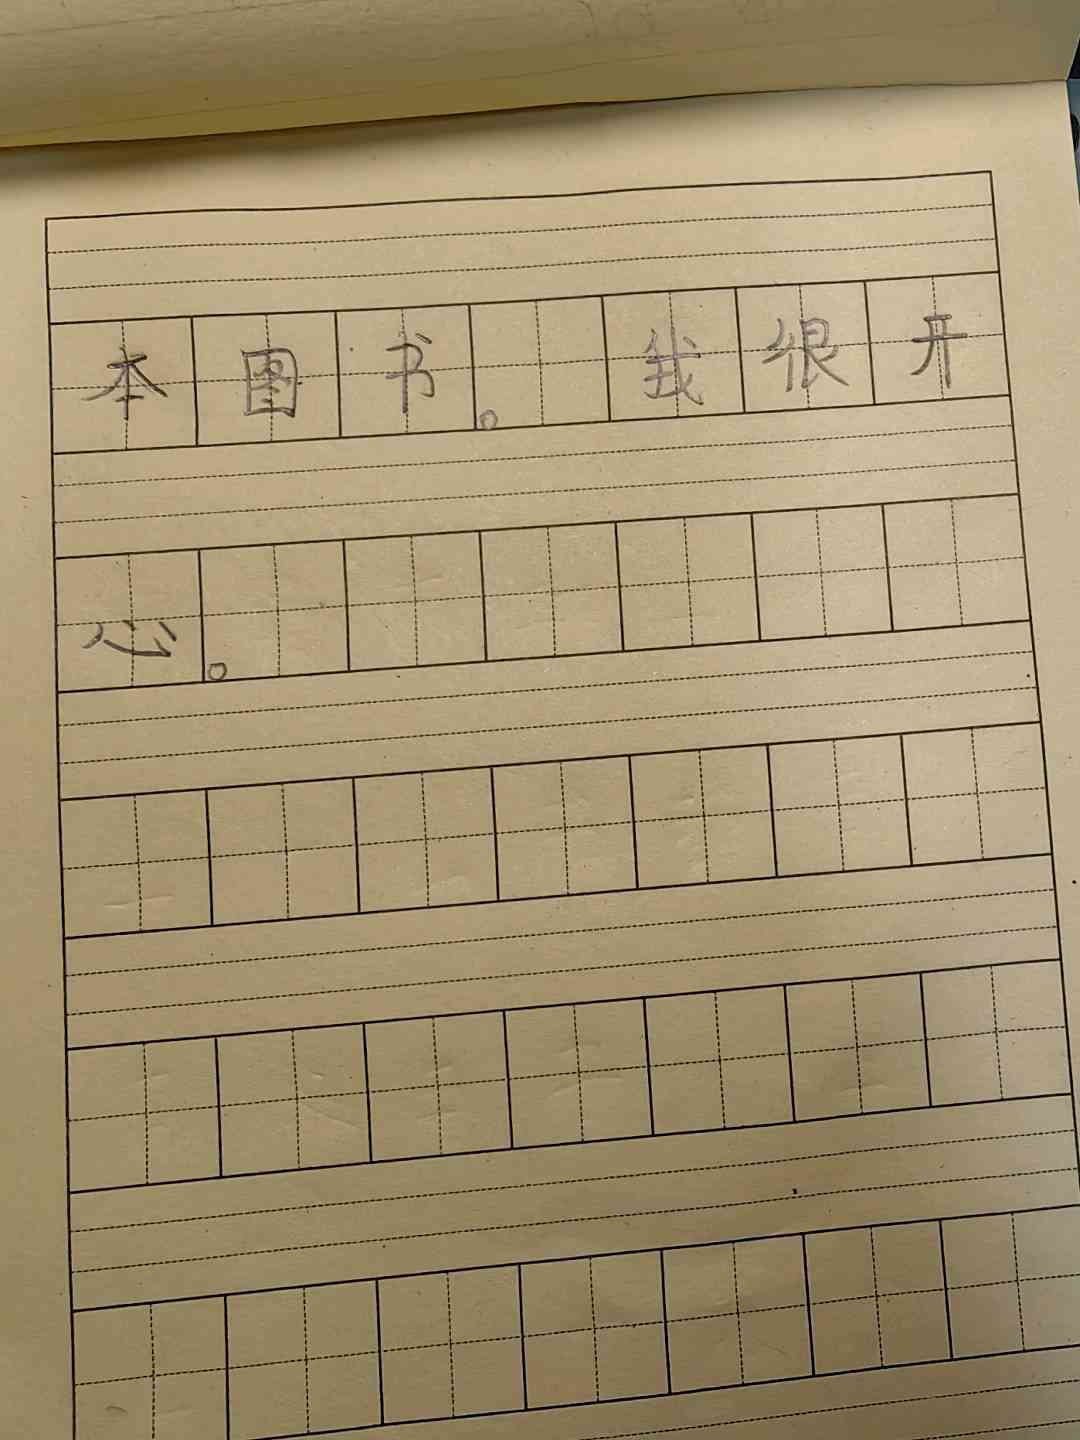 本图书。我很开
心。